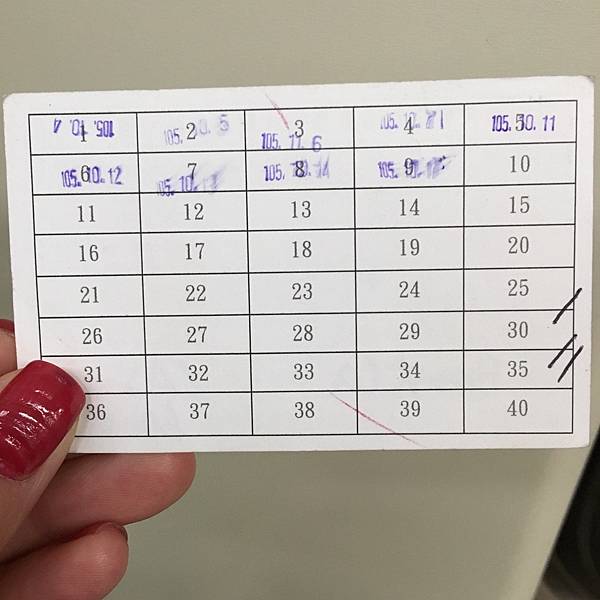 1 2 3 4 5
105.10.4 105.10.5 105.11.6 105.10.11
6 7 8 9 10
105.10.12 105.10. 105.10.14 105.10.
11 12 13 14 15
16 17 18 19 20
21 22 23 24 25
26 27 28 29 30
31 32 33 34 35
36 37 38 39 40